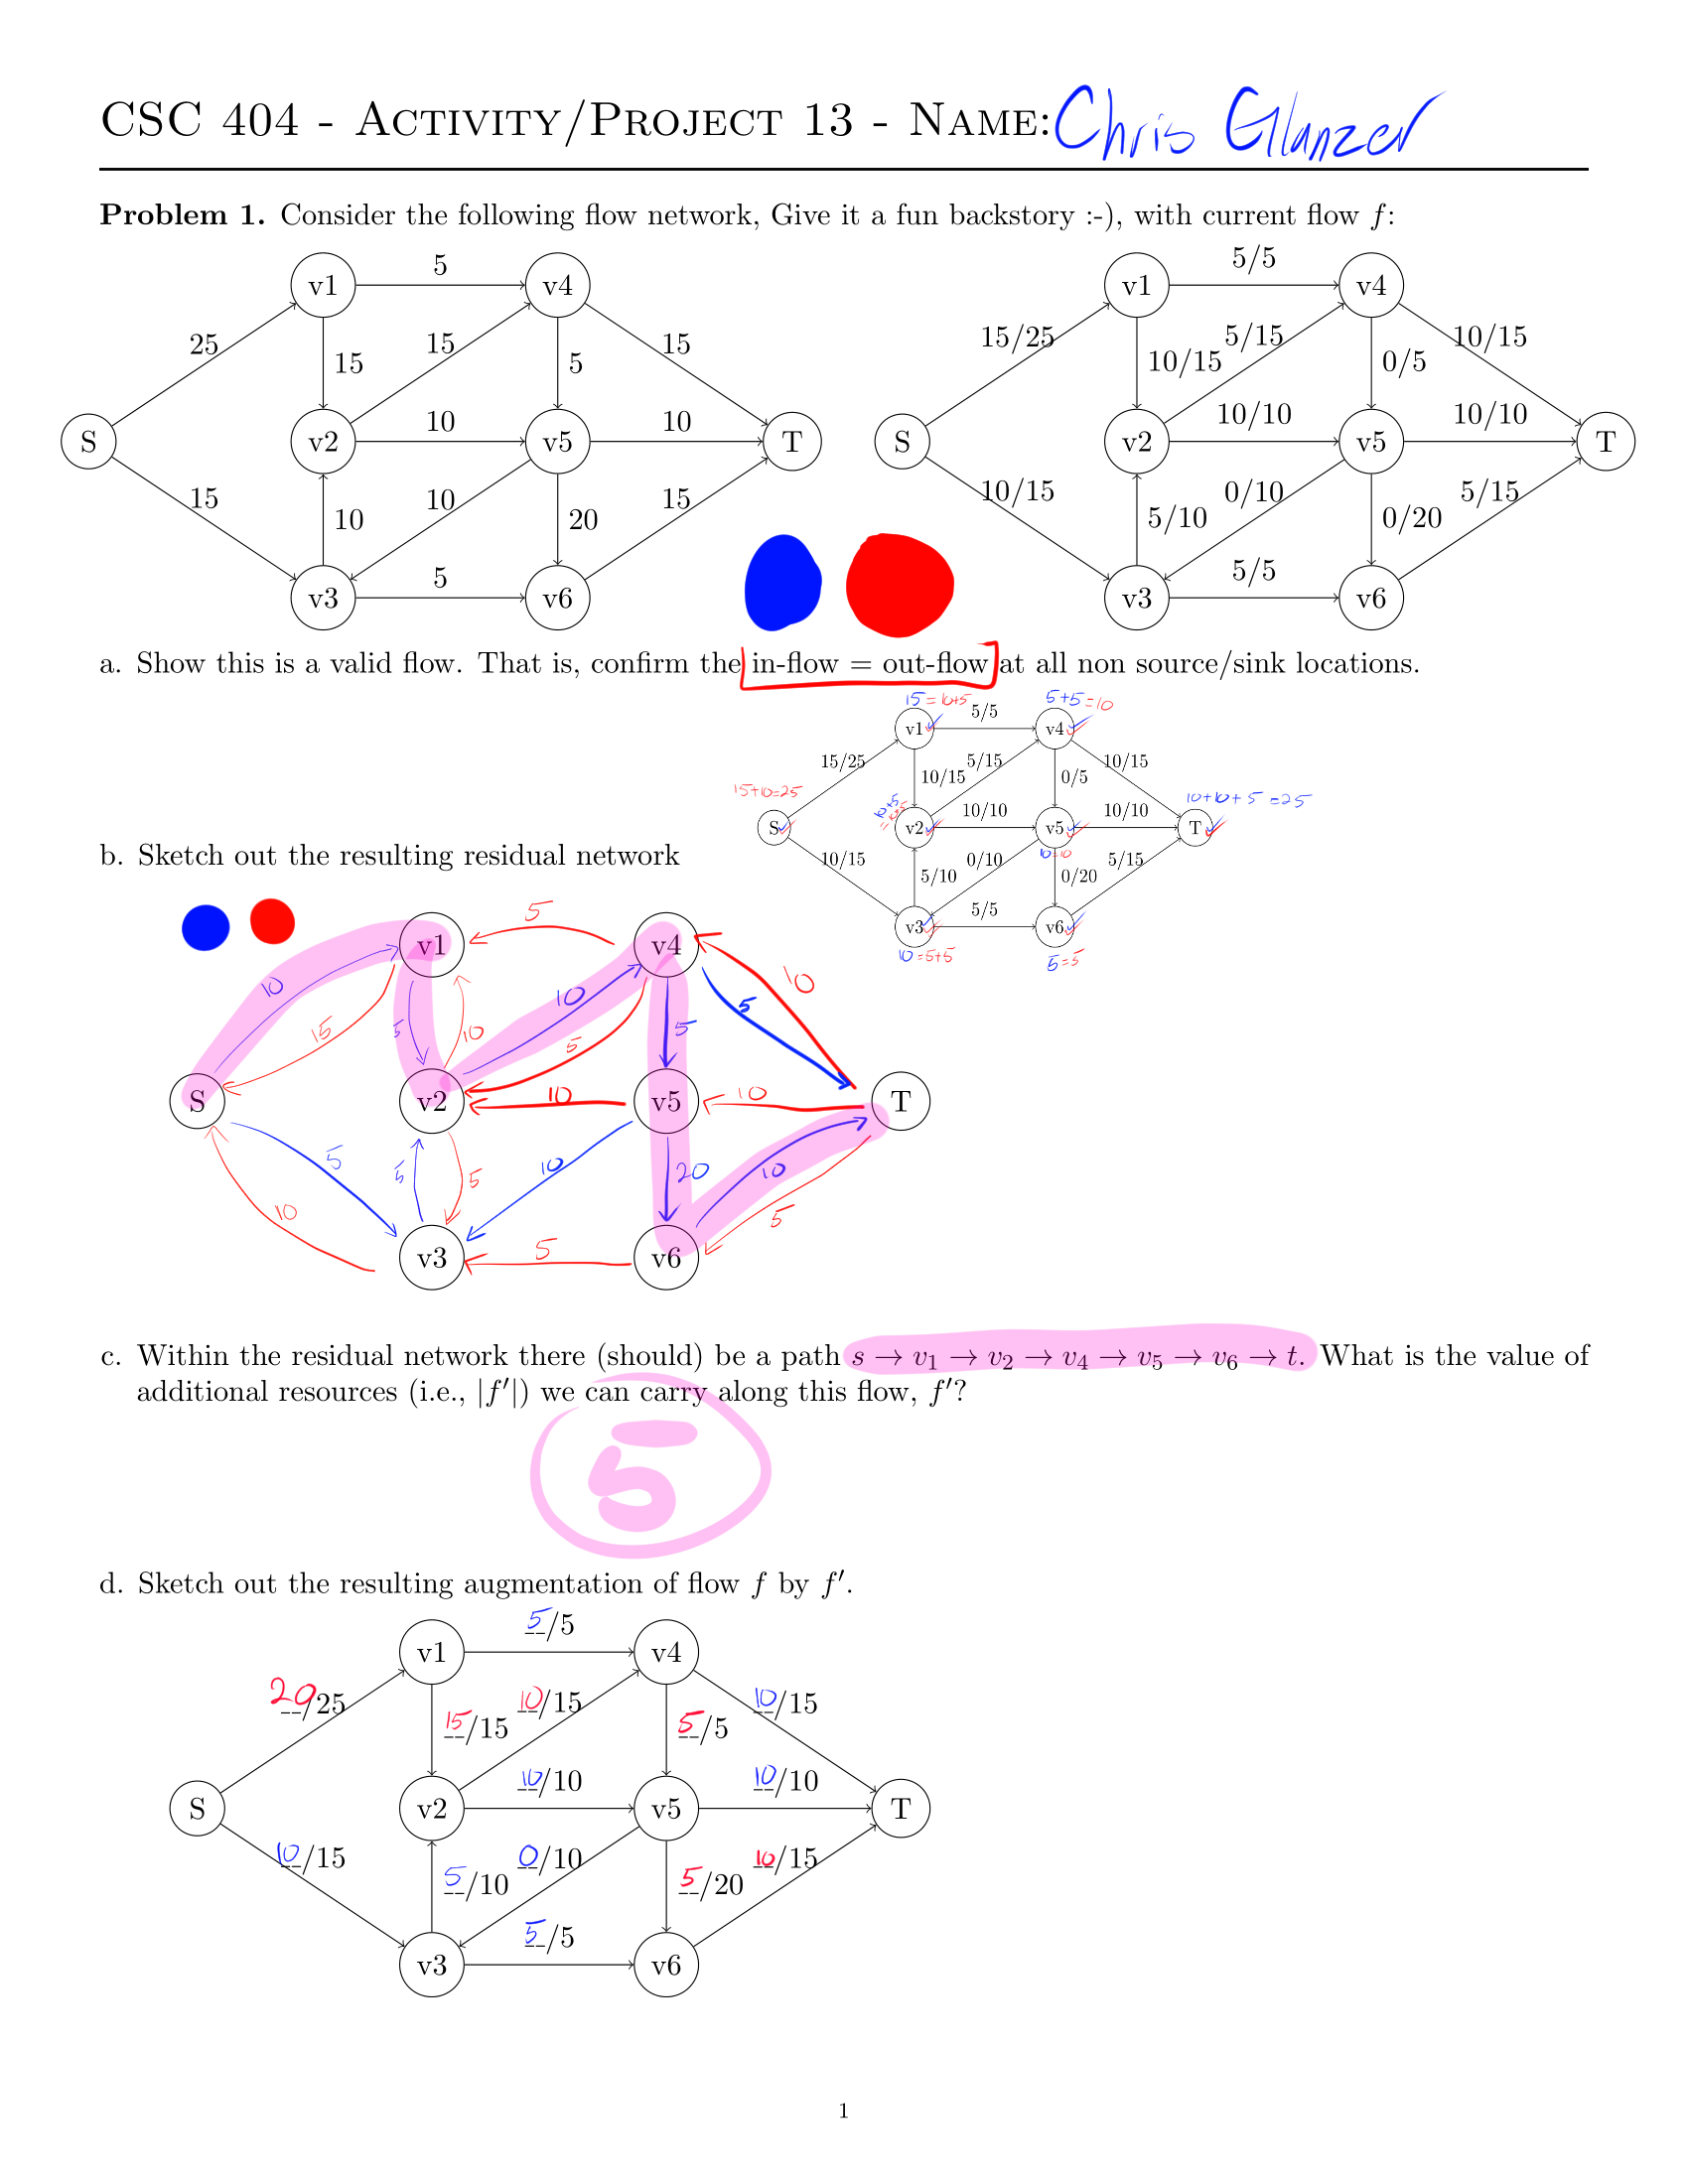 CSC 404 - Activity/Project 13 - Name: Chris Glanzer
Problem 1. Consider the following flow network, Give it a fun backstory :-), with current flow f:
v1 5 v4
25 15 15 5 15
S v2 10 v5 10 T
15 10 10 20 15
v3 5 v6
v1 5/5 v4
15/25 10/15 5/15 0/5 10/15
S v2 10/10 v5 10/10 T
10/15 5/10 0/10 0/20 5/15
v3 5/5 v6
a. Show this is a valid flow. That is, confirm the in-flow = out-flow at all non source/sink locations.
15 = 10+5 5+5 = 10
v1 5/5 v4
15/25 10/15 5/15 0/5 10/15
15+10=25 10+5 = 10+5 10+10+5 = 25
S v2 10/10 v5 10/10 T
10=10
10/15 5/10 0/10 0/20 5/15
v3 5/5 v6
10 = 5+5 5=5
b. Sketch out the resulting residual network
v1 5 v4
10 15 5 10 10 5 5 5 10
S v2 10 v5 10 T
5 10 5 5 10 20 10 5
v3 5 v6
c. Within the residual network there (should) be a path s → v1 → v2 → v4 → v5 → v6 → t. What is the value of
additional resources (i.e., |f′|) we can carry along this flow, f′?
5
d. Sketch out the resulting augmentation of flow f by f′.
v1 5/5 v4
20/25 15/15 10/15 5/5 10/15
S v2 10/10 v5 10/10 T
10/15 5/10 0/10 5/20 10/15
v3 5/5 v6
1